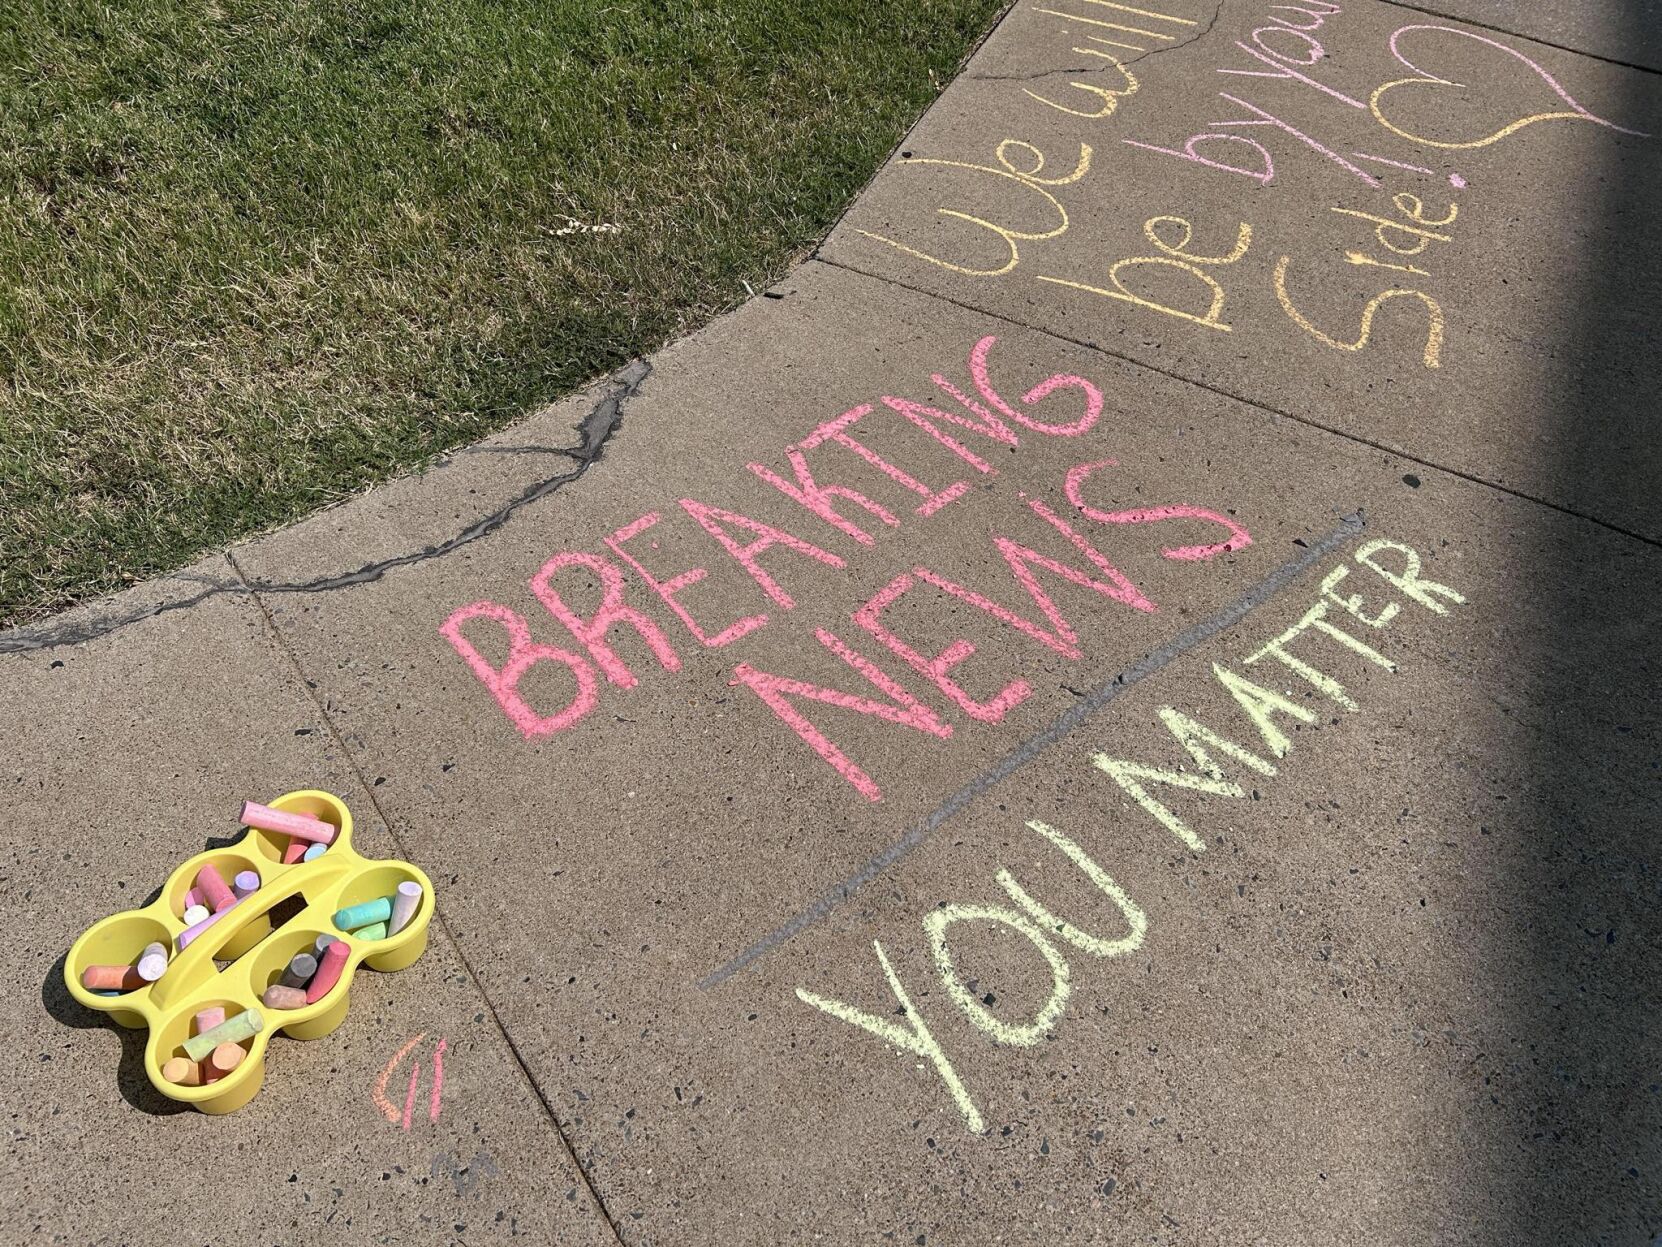 We will
be by your
Side!
BREAKING
NEWS
YOU MATTER